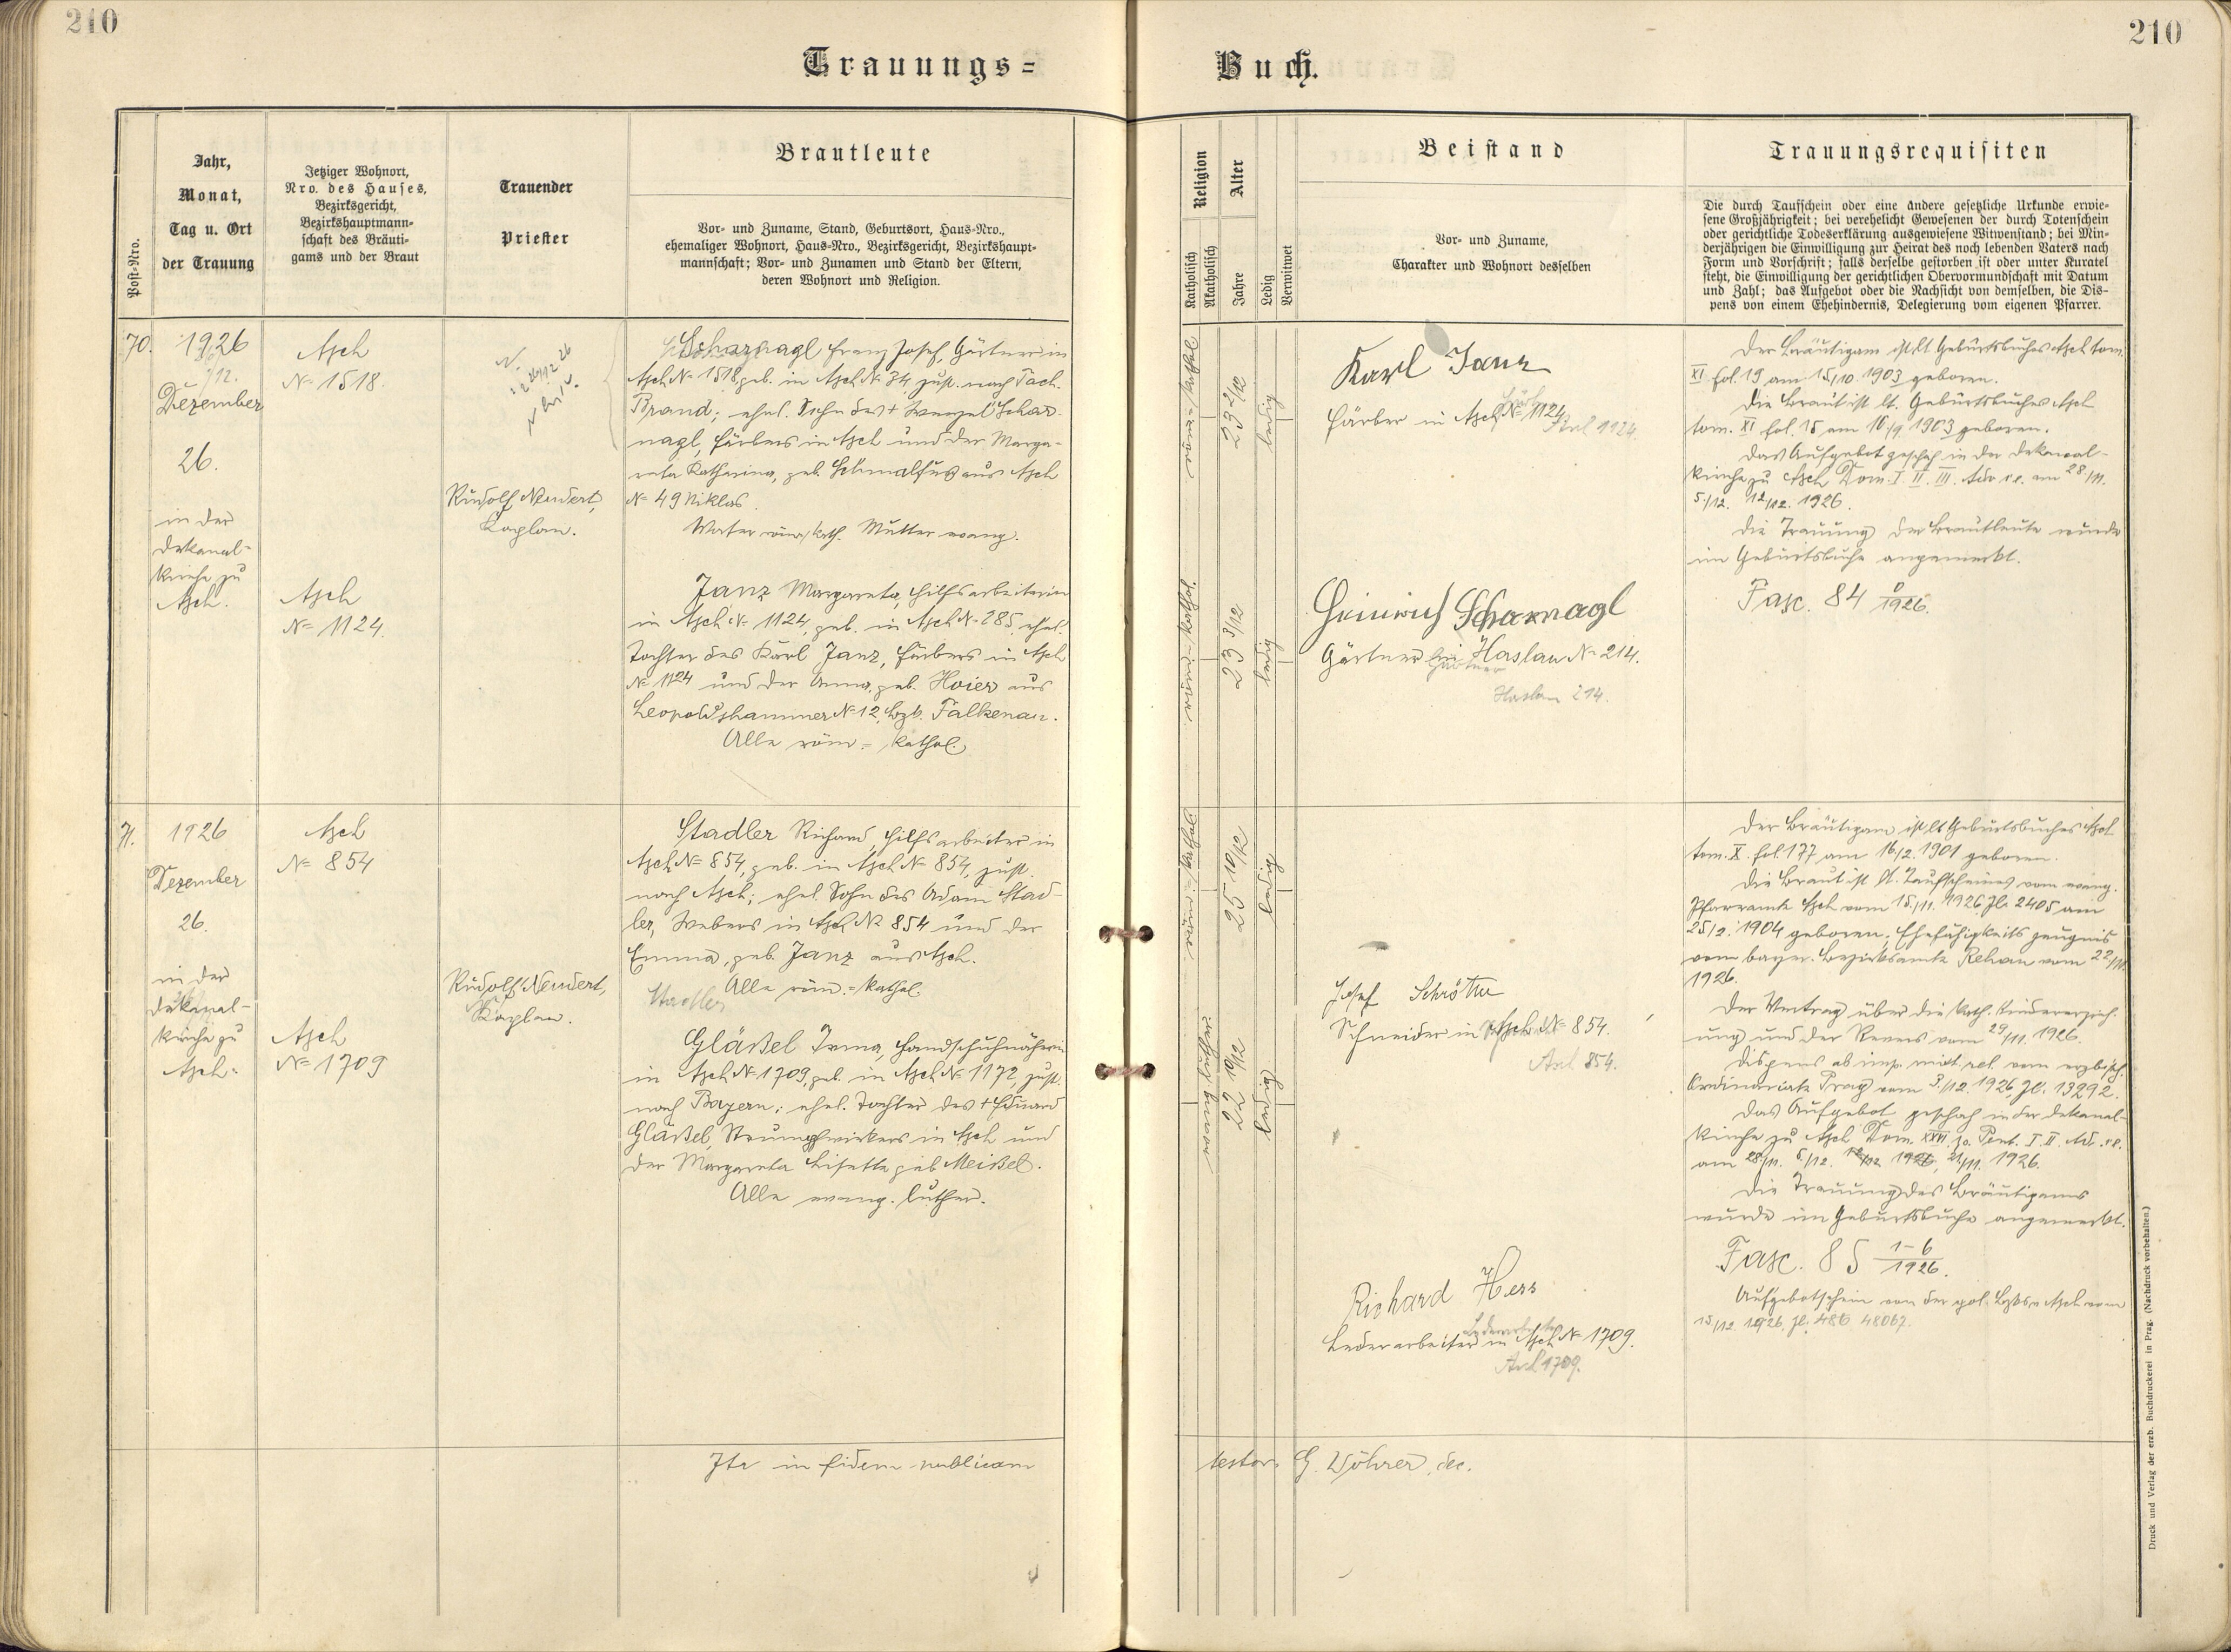 210
210
Trauungs=
Buch.
Post-Nro.
Jahr,
Monat,
Tag u. Ort
der Trauung
Jetziger Wohnort,
Nro. des Hauses,
Bezirksgericht,
Bezirkshauptmann-
schaft des Bräuti-
gams und der Braut
Trauender
Priester
Brautleute
Vor- und Zuname, Stand, Geburtsort, Haus-Nro.,
ehemaliger Wohnort, Haus-Nro., Bezirksgericht, Bezirkshaupt-
mannschaft; Vor- und Zunamen und Stand der Eltern,
deren Wohnort und Religion.
Religion
Katholisch
Akatholisch
Alter
Jahre
Ledig
Verwitwet
Beistand
Vor- und Zuname,
Charakter und Wohnort desselben
Trauungsrequisiten
Die durch Taufschein oder eine andere gesetzliche Urkunde erwie-
sene Großjährigkeit; bei verehelicht Gewesenen der durch Totenschein
oder gerichtliche Todeserklärung ausgewiesene Witwenstand; bei Min-
derjährigen die Einwilligung zur Heirat des noch lebenden Vaters nach
Form und Vorschrift; falls derselbe gestorben ist oder unter Kuratel
steht, die Einwilligung der gerichtlichen Obervormundschaft mit Datum
und Zahl; das Aufgebot oder die Nachsicht von demselben, die Dis-
pens von einem Ehehindernis, Delegierung vom eigenen Pfarrer.
70.
1926
Dezember
26.
in der
Dekanal-
kirche zu
Asch.
Asch
N= 1518.
Asch
N= 1124.
Rudolf Neudert,
Kaplan.
Scharnagl Franz Josef, Gärtner in
Asch N= 1518, geb. in Asch N= 34, zust. nach Tach.
Brand; ehel. Sohn des + Wenzel Schar-
nagl, Färbers in Asch und der Marga-
reta Katharina, geb. Schmalfuß aus Asch
N= 49 Niklas.
Vater röm. kath. Mutter evang.
Janz Margareta, Hilfsarbeiterin
in Asch N= 1124, geb. in Asch N= 285, ehel.
Tochter des Karl Janz, Färbers in Asch
N= 1124 und der Anna, geb. Hoier aus
Leopoldshammer N= 12, Bzb. Falkenau.
Alle röm.= kathol.
röm.=kathol.
23 2/12
ledig
röm.-kathol.
23 3/12
ledig
Karl Janz
Färber in Asch N= 1124
Asch 1124.
Heinrich Scharnagl
Gärtner in Haslau N= 214.
Gärtner
Haslau 214.
Der Bräutigam ist lt. Geburtsbuches Asch tom.
XI. fol. 19 am 15/10. 1903 geboren.
Die Braut ist lt. Geburtsbuches Asch
tom. XI fol. 15 am 16/9. 1903 geboren.
Das Aufgebot geschah in der Dekanal-
kirche zu Asch Dom. I. II. III. Adv. re. am 28/11.
5./12. 12/12. 1926.
Die Trauung der Brautleute wurde
im Geburtsbuche angemerkt.
Fasc. 84 0/1926.
71.
1926
Dezember
26.
in der
Dekanal-
kirche zu
Asch.
Asch
N= 854
Asch
N= 1709
Rudolf Neudert,
Kaplan.
Stadler Richard, Hilfsarbeiter in
Asch N= 854, geb. in Asch N= 854, zust.
nach Asch; ehel. Sohn des Adam Stad-
ler, Webers in Asch N= 854 und der
Emma, geb. Janz aus Asch.
Alle röm.=kathol.
Stadler
Gläßel Irma, Handschuhnäherin
in Asch N= 1709, geb. in Asch N= 1172, zust.
nach Bayern; ehel. Tochter des + Eduard
Gläßel, Strumpfwirkers in Asch und
der Margareta Lisette geb. Meißel.
Alle evang. luther.
röm.=kathol.
25 10/12
ledig
evang. luther.
22 10/12
ledig
Josef Schrötter
Schneider in Asch N= 854.
Asch 854.
Richard Hess
Lederarbeiter in Asch N= 1709.
Asch 1709.
Der Bräutigam ist lt. Geburtsbuches Asch
tom. X. fol. 177 am 16/2. 1901 geboren.
Die Braut ist lt. Taufscheines vom evang.
Pfarramte Asch vom 15./11. 1926 Zl. 2405 am
25/2. 1904 geboren; Ehefähigkeitszeugnis
vom bayer. Bezirksamte Rehau vom 22/11.
1926.
Der Vertrag über die kath. Kindererzieh-
ung und der Revers vom 29/11. 1926.
Dispens ab imp. mixt. rel. vom erzbisch.
Ordinariate Prag vom 3./12. 1926, Zl. 13292.
Das Aufgebot geschah in der Dekanal-
kirche zu Asch Dom. XXVI. p. Pent. I. II. Adv. re.
am 28/11. 5./12. 12/12. 1926, 21/11. 1926.
Die Trauung des Bräutigams
wurde im Geburtsbuche angemerkt.
Fasc. 85 1-6/1926.
Aufgebotschein von der pol. Bzksv. Asch vom
15/12. 1926, Zl. 486 48067.
Ita in fidem publicam
testor. G. Wöhrer, dec.
Druck und Verlag der erzb. Buchdruckerei in Prag. (Nachdruck vorbehalten.)